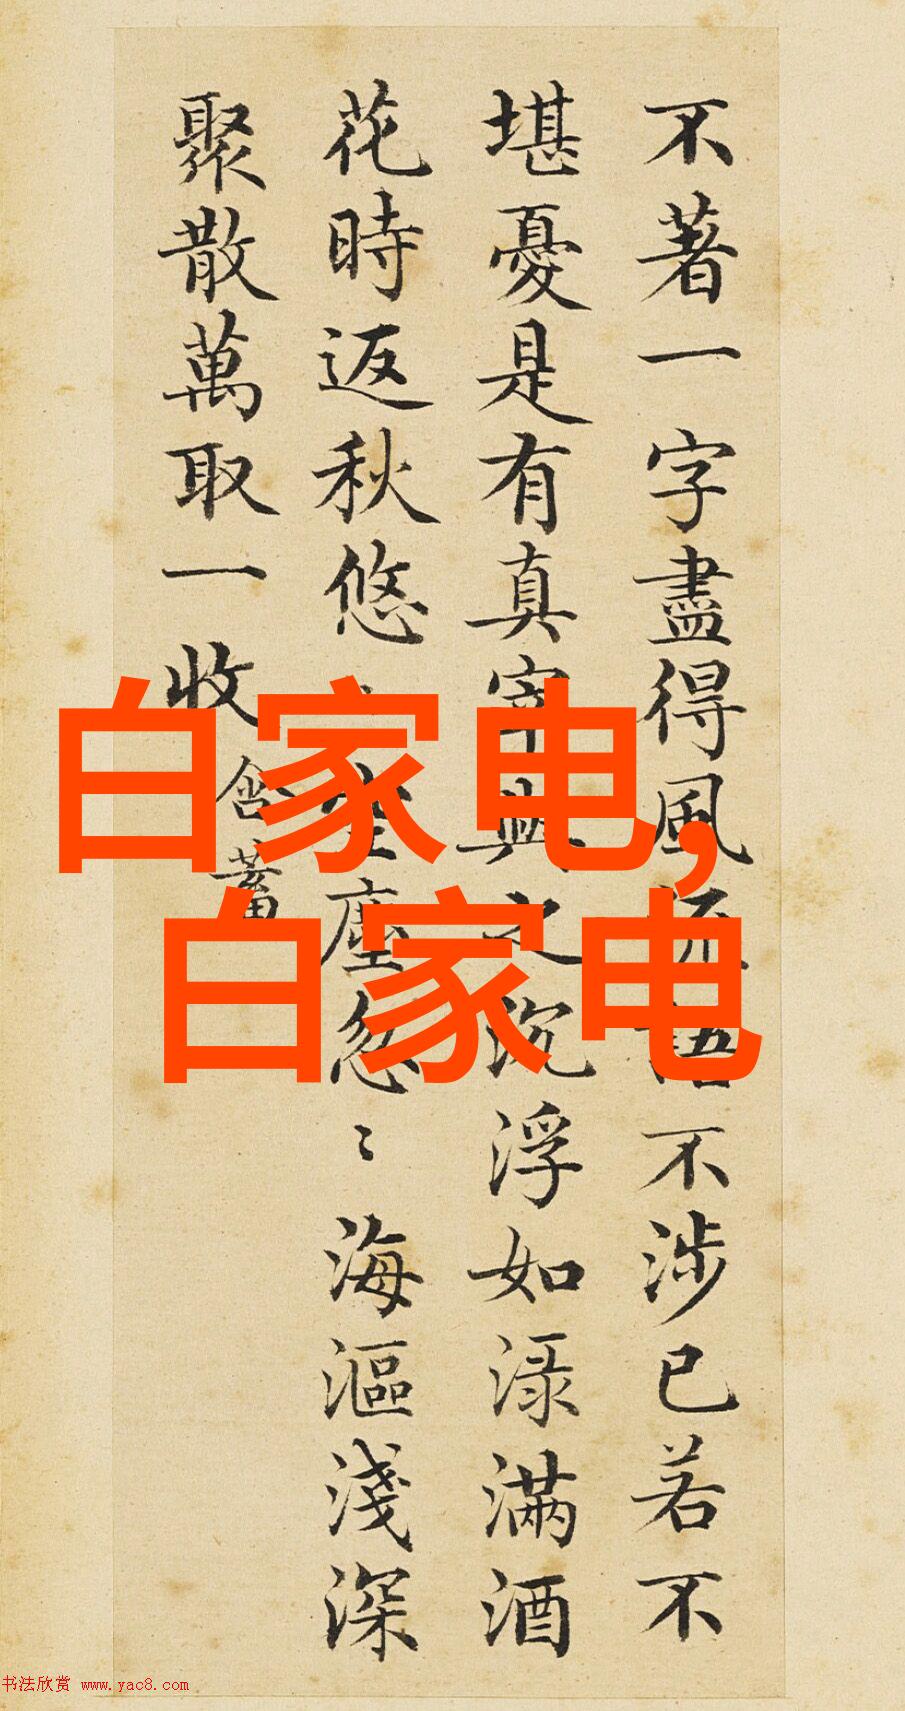 不著一字盡得風流語不涉已若不
堪憂是有真宰與之沉浮如渌滿酒
花時返秋悠〻空塵忽〻海漚淺深
聚散萬取一收
含蓄
白家电,
白家电
书法欣赏 www.yac8.com